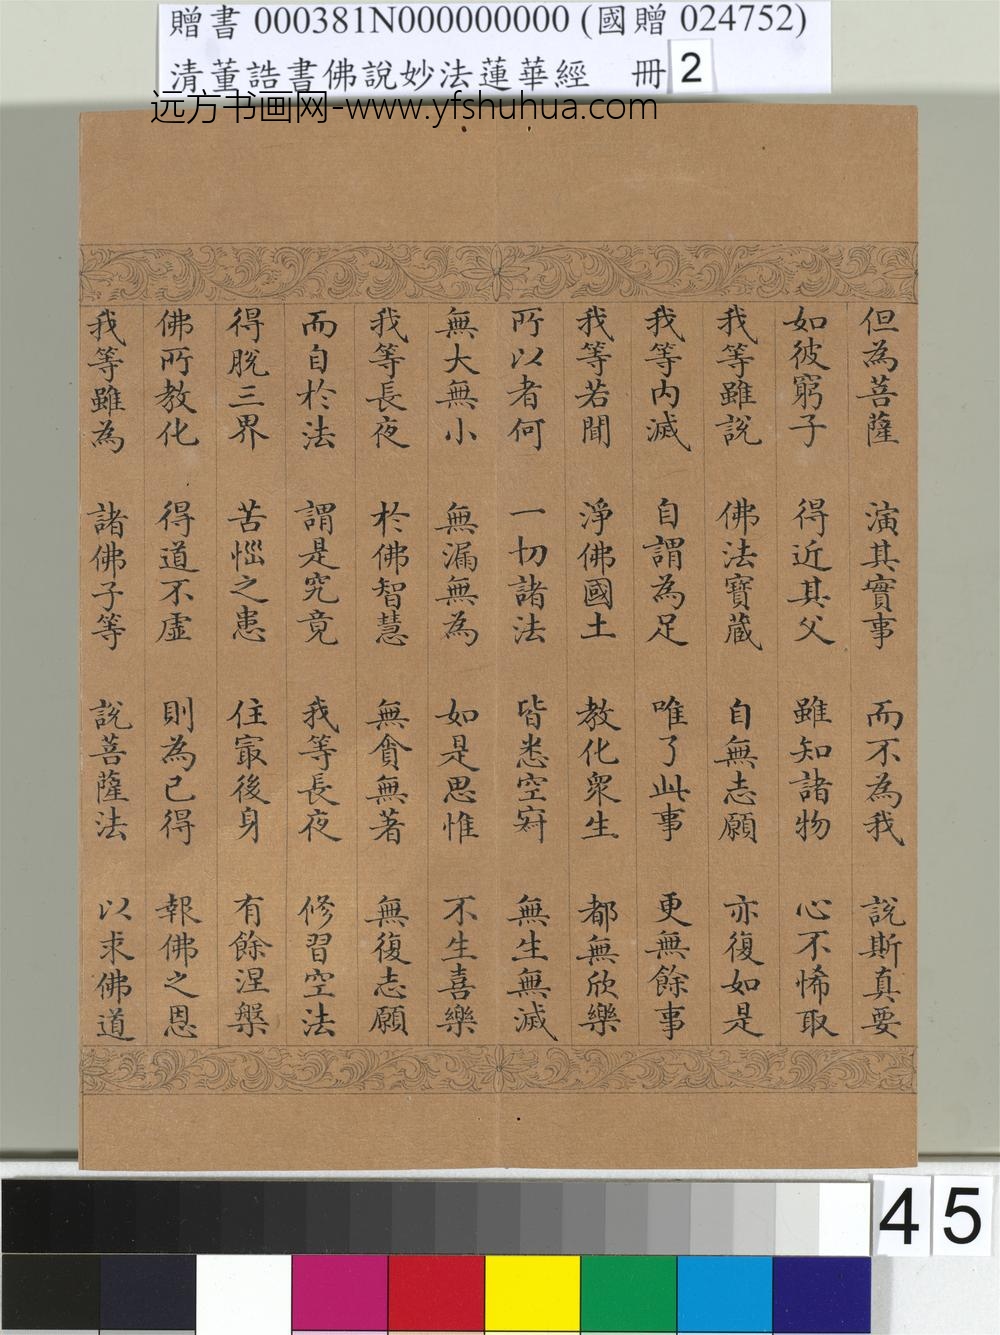 贈書 000381N000000000 (國贈 024752)
清董誥書佛說妙法蓮華經 冊 2
远方书画网-www.yfshuhua.com
但為菩薩 演其實事 而不為我 說斯真要
如彼窮子 得近其父 雖知諸物 心不悕取
我等雖說 佛法寶藏 自無志願 亦復如是
我等內滅 自謂為足 唯了此事 更無餘事
我等若聞 淨佛國土 教化眾生 都無欣樂
所以者何 一切諸法 皆悉空寂 無生無滅
無大無小 無漏無為 如是思惟 不生喜樂
我等長夜 於佛智慧 無貪無著 無復志願
而自於法 謂是究竟 我等長夜 修習空法
得脫三界 苦惱之患 住最後身 有餘涅槃
佛所教化 得道不虛 則為已得 報佛之恩
我等雖為 諸佛子等 說菩薩法 以求佛道
45